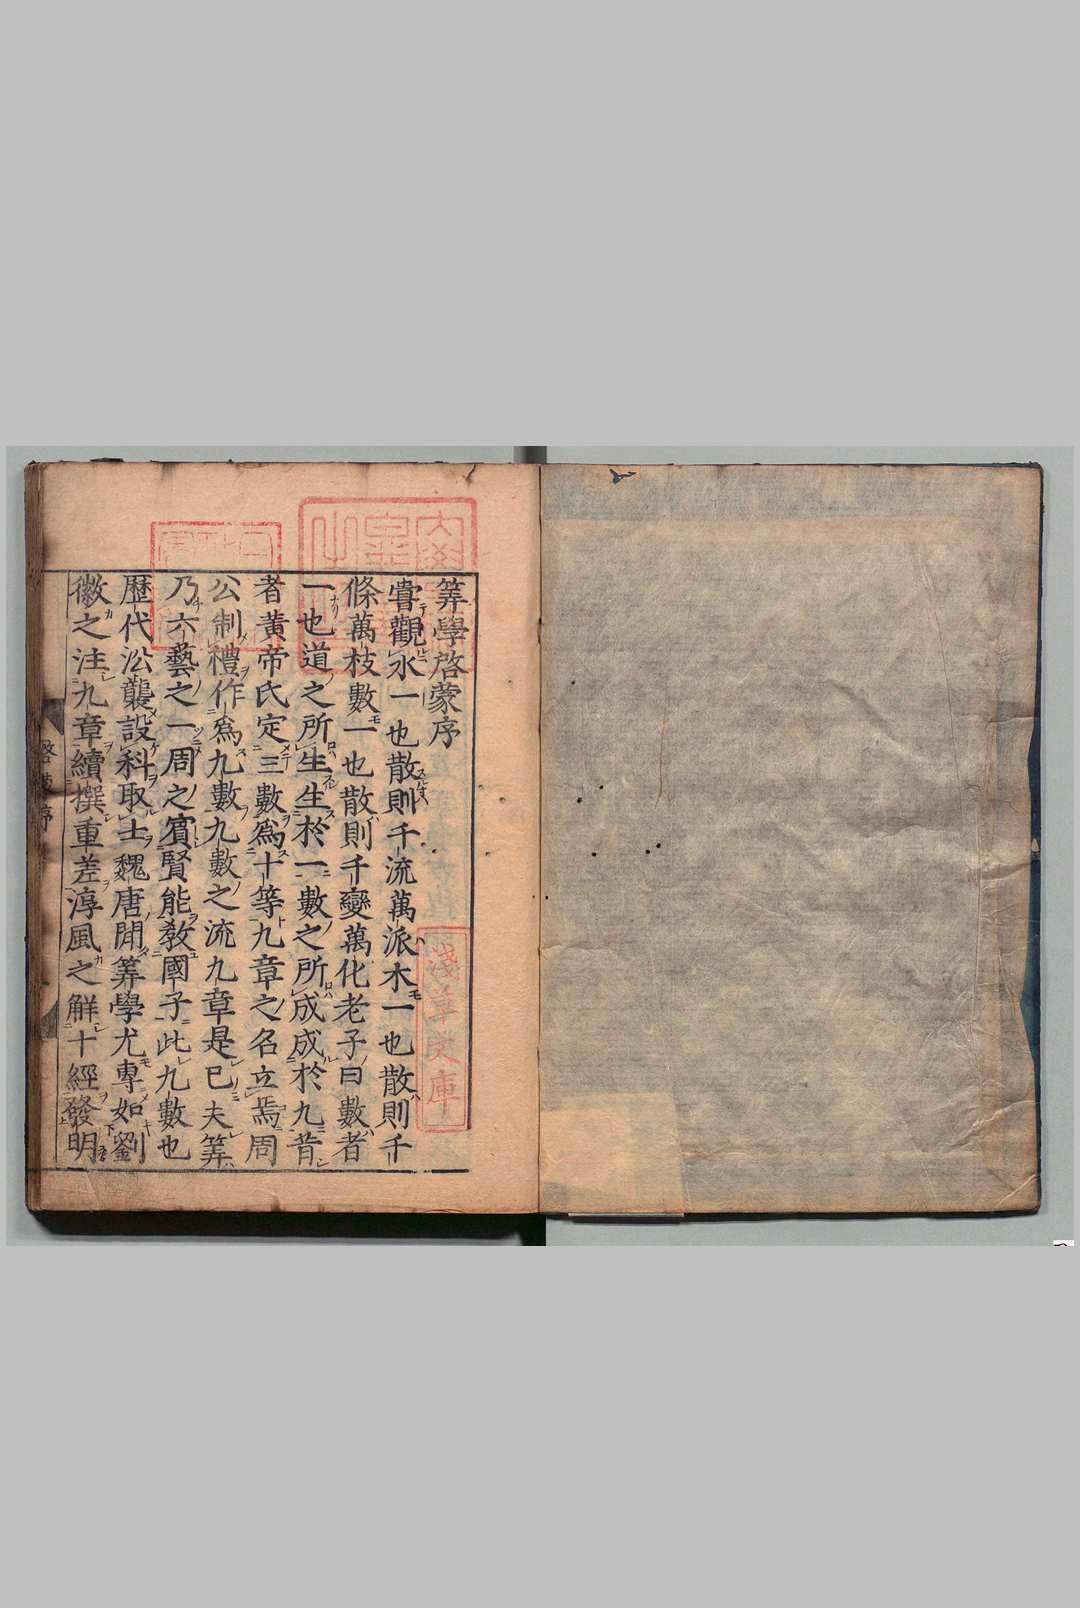 筭學啓蒙序
甞觀水一也散則千流萬派木一也散則千
條萬枝數一也散則千變萬化老子曰數者
一也道之所生生於一數之所成成於九昔
者黃帝氏定三數爲十等九章之名立焉周
公制禮作爲九數九數之流九章是已夫筭
乃六藝之一周之賔賢能敎國子此九數也
歷代㳂襲設科取士魏唐間筭學尤專如劉
徽之注九章續撰重差淳風之解十經發明
淺草文庫